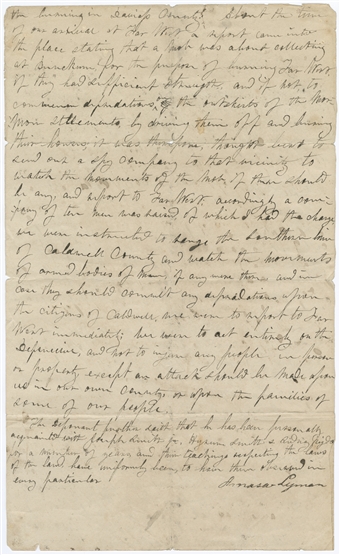 the burning in Daviess County. About the time
of our arrival at Far West a report came into
the place stating that a mob was about collecting
at Bunckum for the purpose of burning Far West
if they had sufficient strength, and if not to
commence depradations, on the outskirts of the Mor-
mon settlements, by driving them off and burning
their houses it was therefore, thought best to
send out a spy company to that vicinity to
watch the movements of the Mob, if there should
be any, and report to Far West, accordingly a com-
pany of ten men was raised of which I had the charge
we were instructed to range the Southern line
of Caldwell County, and watch the movements
of armed bodies of men, if any were there and in
case they should commit any depradations upon
the citizens of Caldwell, we were to report to Far
West immediately; we were to act entirely on the
Defensive, and not to injure any people in person
or property, except an attack should be made upon
us in our own County, or upon the families of
some of our people.
The deponent further saith that he has been personally
acquainted with Joseph Smith Jr. Hyrum Smith & Sidney Rigdon
for a number of years, and their teachings respecting the laws
of the land have uniformly been, to have them observed in
every particular
Amasa Lyman